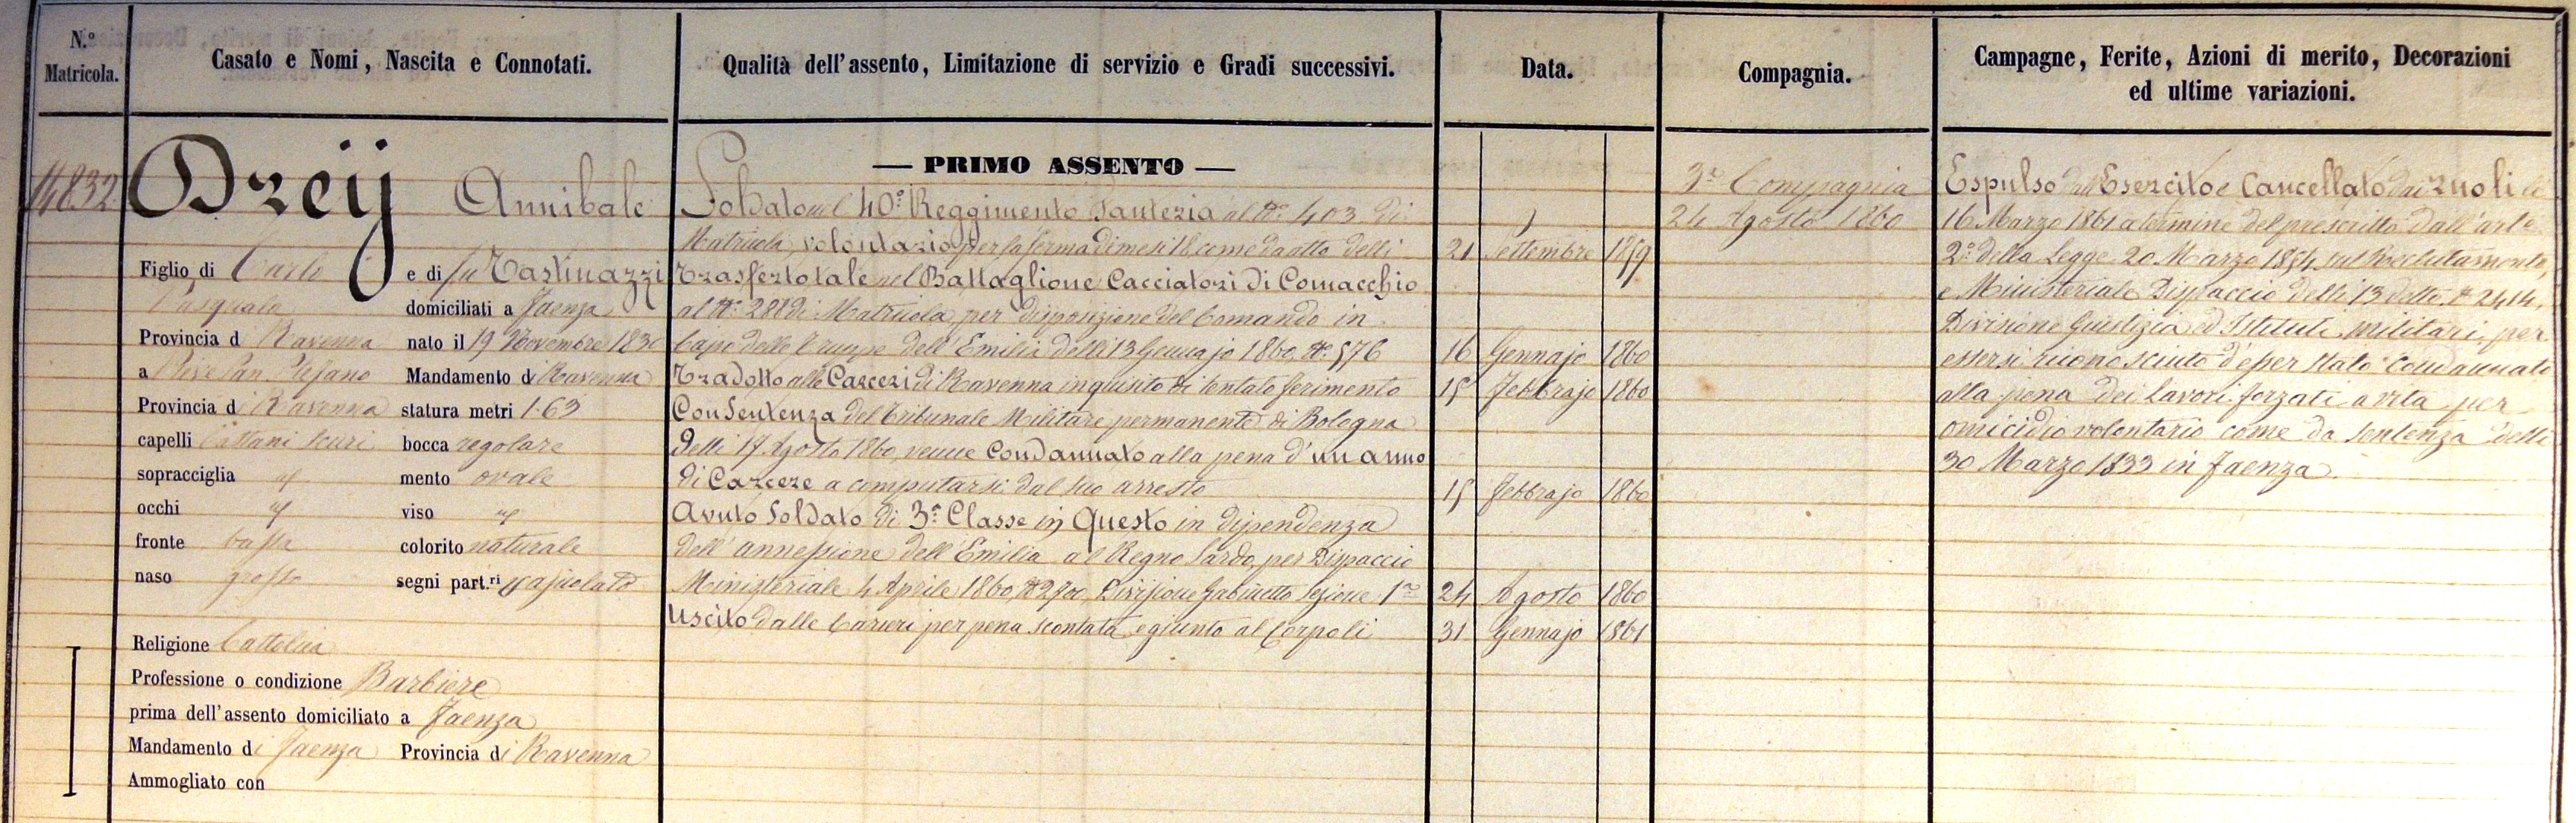 N.º Matricola.
Casato e Nomi, Nascita e Connotati.
Qualità dell'assento, Limitazione di servizio e Gradi successivi.
Data.
Compagnia.
Campagne, Ferite, Azioni di merito, Decorazioni
ed ultime variazioni.
14832
Drej Annibale
Figlio di Carlo e di fu Tastinazzi
Pasquala domiciliati a Faenza
Provincia d Ravenna nato il 19 Novembre 1830
a Pieve San Stefano Mandamento di Ravenna
Provincia di Ravenna statura metri 1.63
capelli Castani scuri bocca regolare
sopracciglia id mento ovale
occhi id viso id
fronte bassa colorito naturale
naso grosso segni part.ri vajuolato
Religione Cattolica
Professione o condizione Barbiere
prima dell'assento domiciliato a Faenza
Mandamento di Faenza Provincia di Ravenna
Ammogliato con
— PRIMO ASSENTO —
Soldato nel 40º Reggimento Fanteria al Nº 403 di
Matricola, volontario per la ferma di mesi 18 come da atto delli 21 Settembre 1859
Trasferto tale nel Battaglione Cacciatori di Comacchio
al Nº 288 di Matricola, per disposizione del Comando in
Capo delle Truppe dell'Emilia delli 13 Gennajo 1860 Nº 576 16 Gennajo 1860
Tradotto alle Carceri di Ravenna inquisito di tentato ferimento 15 Febbrajo 1860
Con Sentenza del Tribunale Militare permanente di Bologna
delli 17 Agosto 1860, venne Condannato alla pena d'un anno
di Carcere a computarsi dal suo arresto 15 Febbrajo 1860
Avuto Soldato di 3ª Classe in Questo in dipendenza
dell'annessione dell'Emilia al Regno Sardo, per Dispaccio
Ministeriale 4 Aprile 1860, Nº 2700, Divisione Gabinetto Sezione 1ª 24 Agosto 1860
Uscito dalle Carceri per pena scontata e giunto al Corpo li 31 Gennajo 1861
3ª Compagnia
24 Agosto 1860
Espulso dall'Esercito e Cancellato dai ruoli li
16 Marzo 1861 a termine del prescritto dall'art.º
2º della Legge 20 Marzo 1854 sul Reclutamento,
e Ministeriale Dispaccio delli 13 detto Nº 2414,
Divisione Giustizia ed Istituti militari, per
essersi riconosciuto d'esser stato Condannato
alla pena dei lavori forzati a vita per
omicidio volontario come da sentenza delli
30 Marzo 1833 in Faenza.